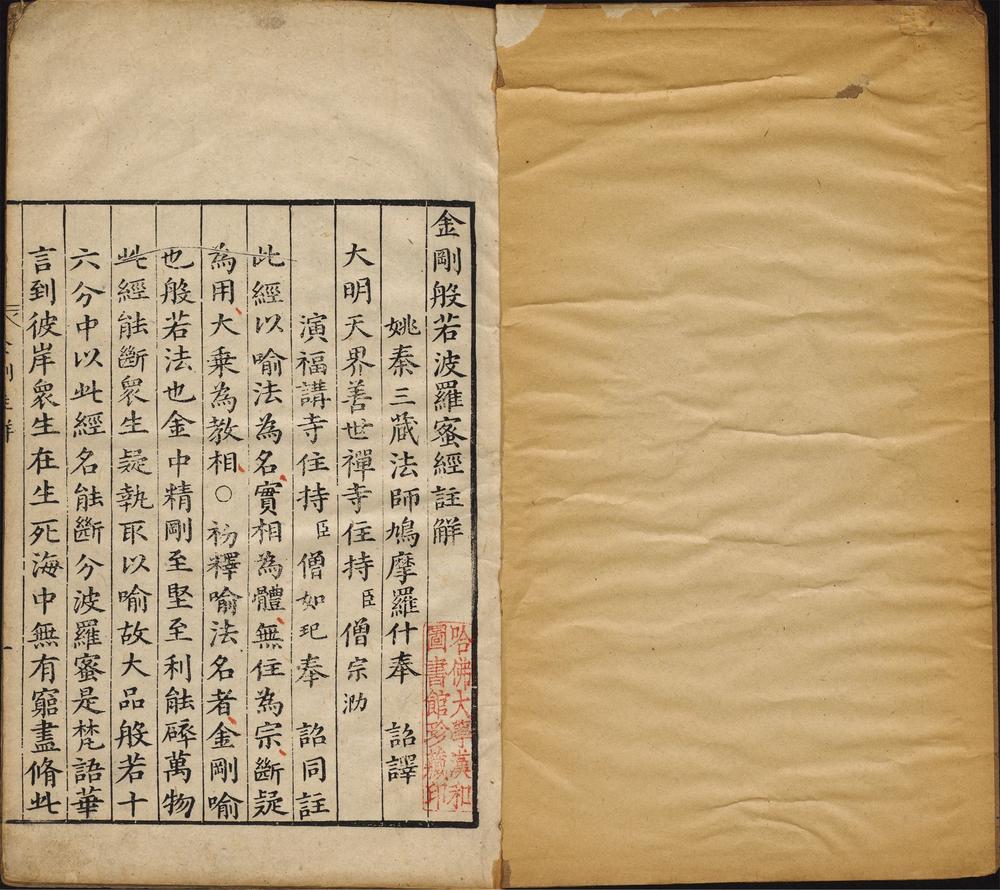 金剛般若波羅蜜經註解
姚秦三藏法師鳩摩羅什奉　詔譯
大明天界善世禪寺住持臣僧宗泐
演福講寺住持臣僧如玘奉　詔同註
此經以喻法為名實相為體無住為宗斷疑
為用大乘為教相○初釋喻法名者金剛喻
也般若法也金中精剛至堅至利能碎萬物
此經能斷衆生疑執取以喻故大品般若十
六分中以此經名能斷分波羅蜜是梵語華
言到彼岸衆生在生死海中無有窮盡脩此
哈佛大學漢和
圖書館珍藏印